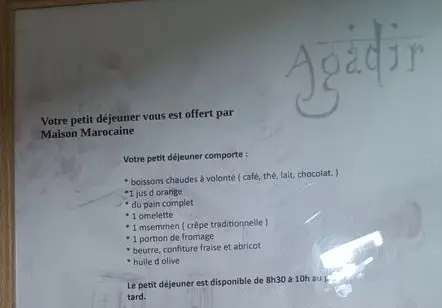 Agadir
Votre petit déjeuner vous est offert par
Maison Marocaine
Votre petit déjeuner comporte :
* boissons chaudes à volonté ( café, thé, lait, chocolat. )
*1 jus d orange
* du pain complet
* 1 omelette
* 1 msemmen ( crêpe traditionnelle )
* 1 portion de fromage
* beurre, confiture fraise et abricot
* huile d olive
Le petit déjeuner est disponible de 8h30 à 10h au
tard.